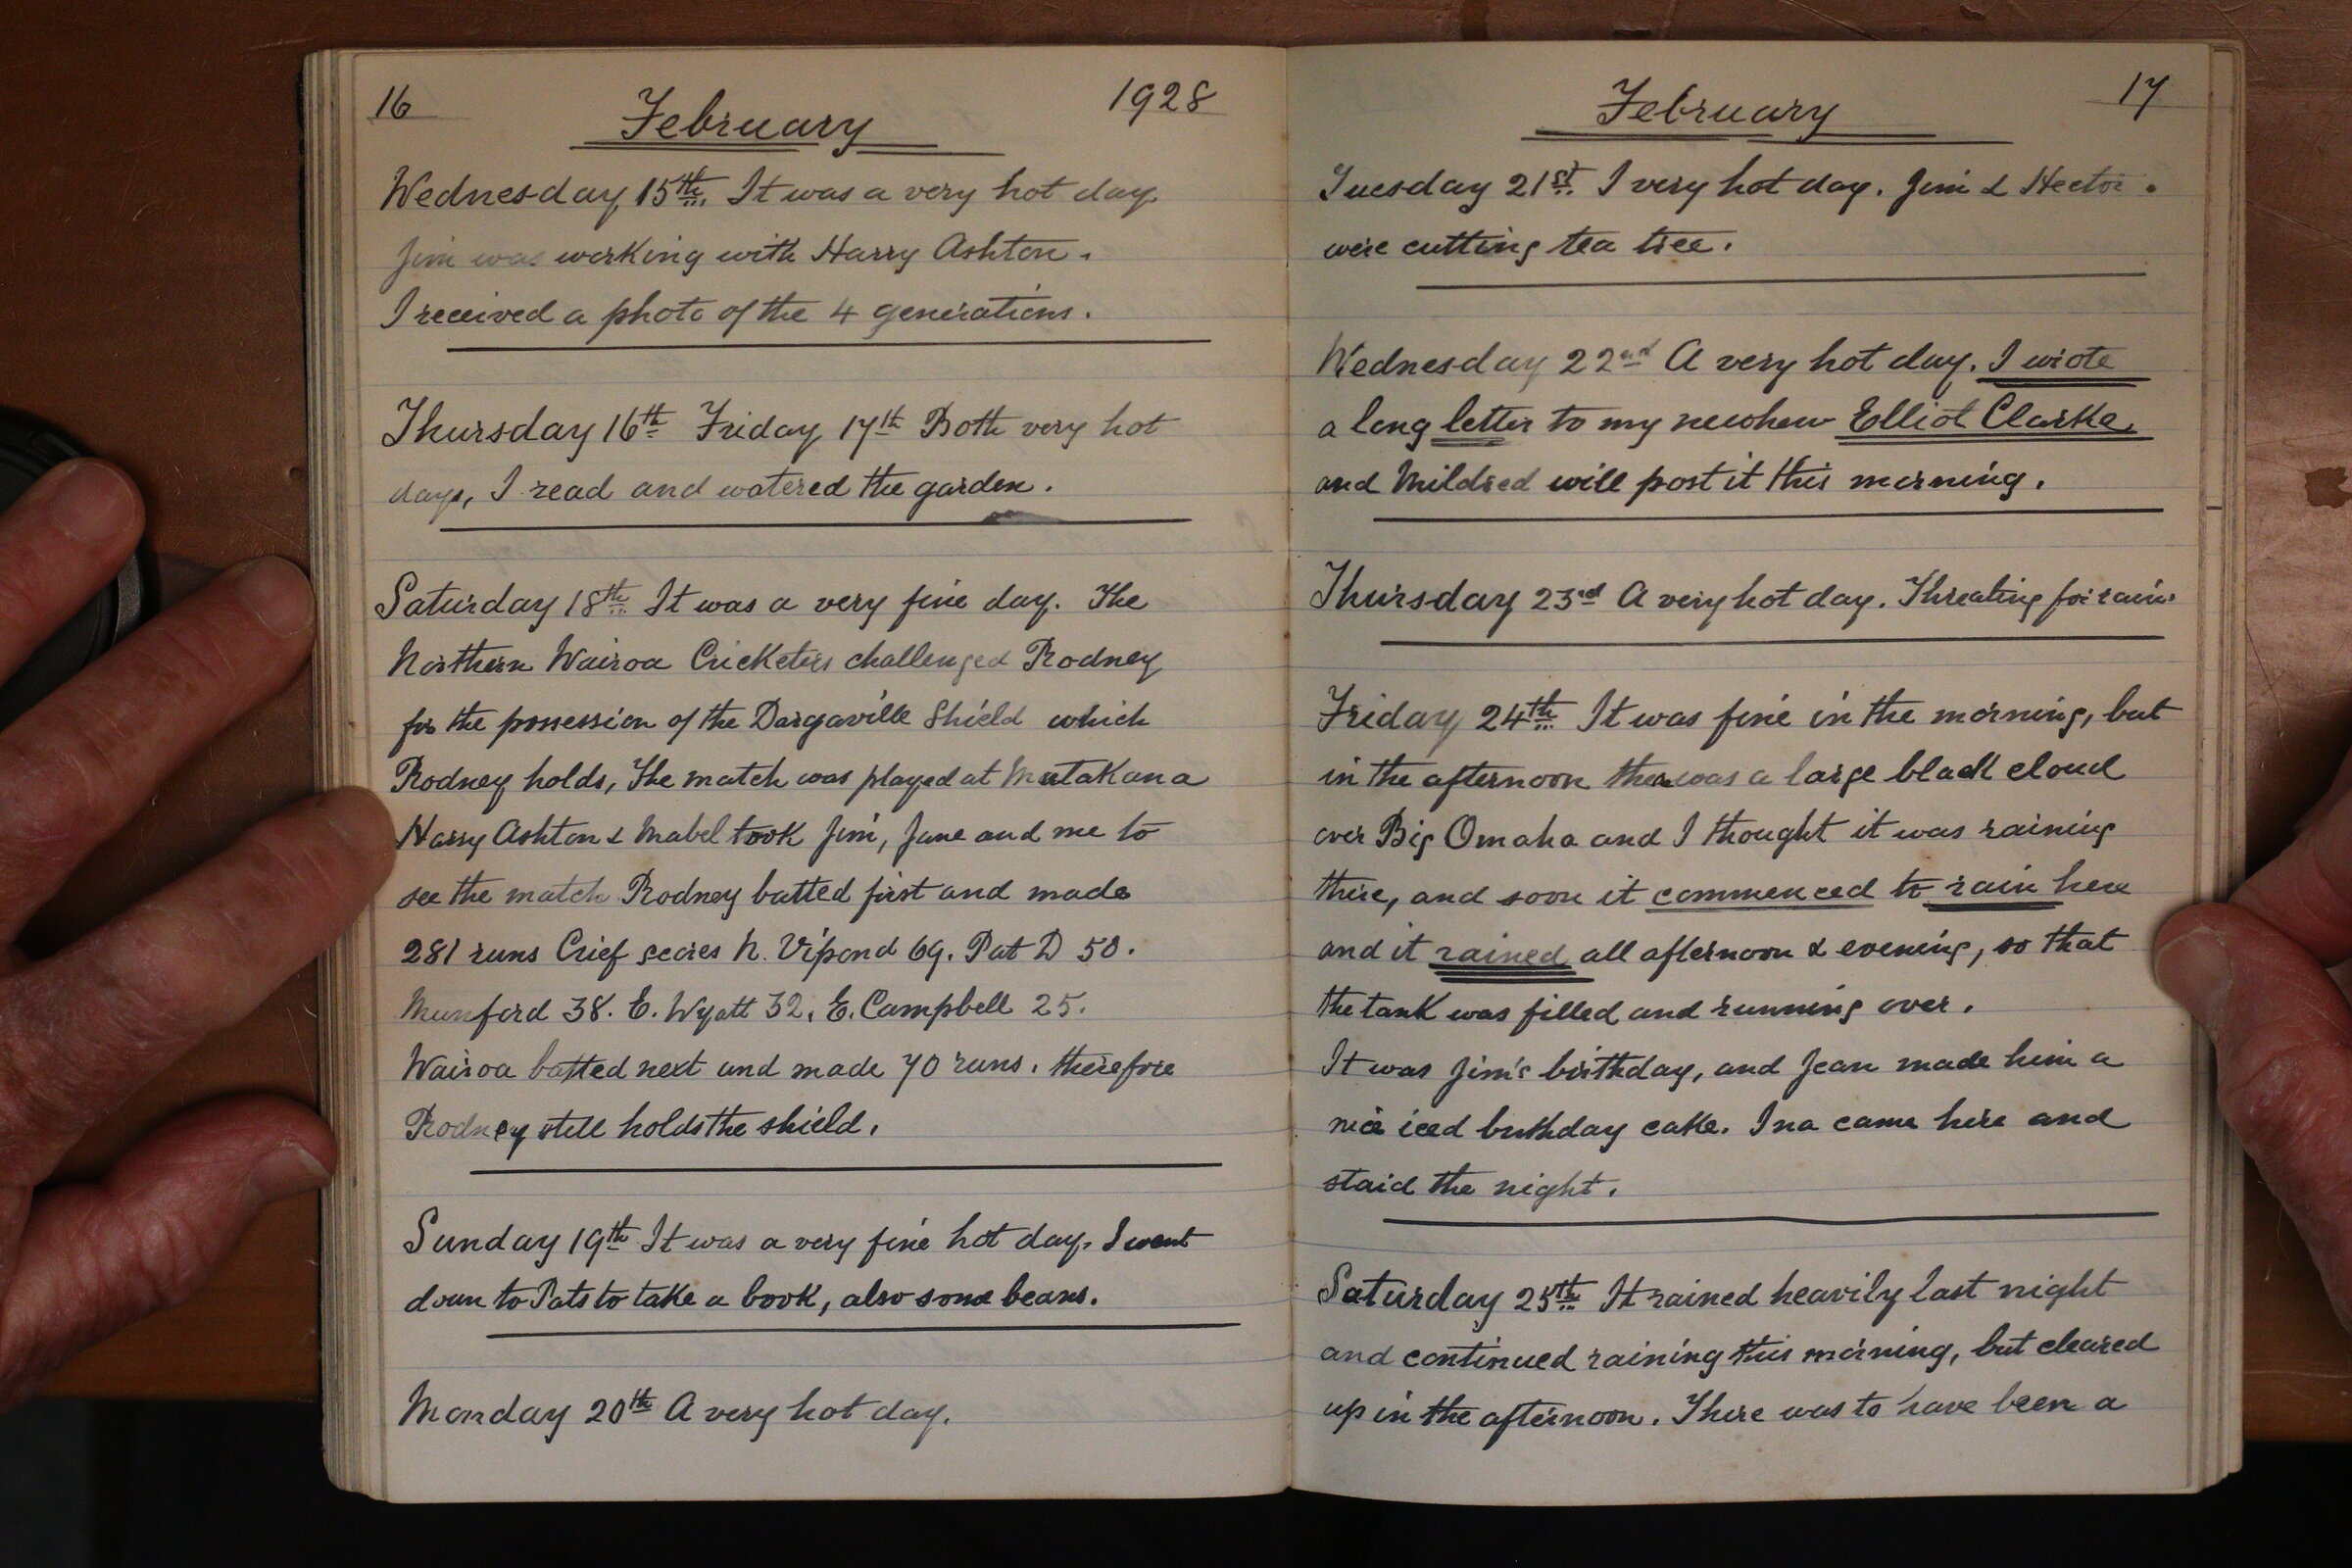 16 February 1928
Wednesday 15th. It was a very hot day.
Jim was working with Harry Ashton.
I received a photo of the 4 generations.
Thursday 16th Friday 17th Both very hot
days, I read and watered the garden.
Saturday 18th It was a very fine day. The
Northern Wairoa Cricketers challenged Rodney
for the possession of the Dargaville Shield which
Rodney holds, The match was played at Matakana
Harry Ashton & Mabel took Jim, Jane and me to
see the match Rodney batted first and made
281 runs Crief scores N. Vipond 69. Pat D 50.
Munford 38. E. Wyatt 32. E. Campbell 25.
Wairoa batted next and made 70 runs. therefore
Rodney still holds the shield.
Sunday 19th It was a very fine hot day. I went
down to Pats to take a book, also some beans.
Monday 20th A very hot day.
February 17
Tuesday 21st. I very hot day. Jim & Hector.
were cutting tea tree.
Wednesday 22nd A very hot day. I wrote
a long letter to my newhew Elliot Clarke,
and Mildred will post it this morning.
Thursday 23rd A very hot day. Threating for rain.
Friday 24th It was fine in the morning, but
in the afternoon there was a large black cloud
over Big Omaha and I thought it was raining
there, and soon it commenced to rain here
and it rained all afternoon & evening, so that
the tank was filled and running over.
It was Jim's birthday, and Jean made him a
nice iced birthday cake. Ina came here and
staid the night.
Saturday 25th It rained heavily last night
and continued raining this morning, but cleared
up in the afternoon. There was to have been a